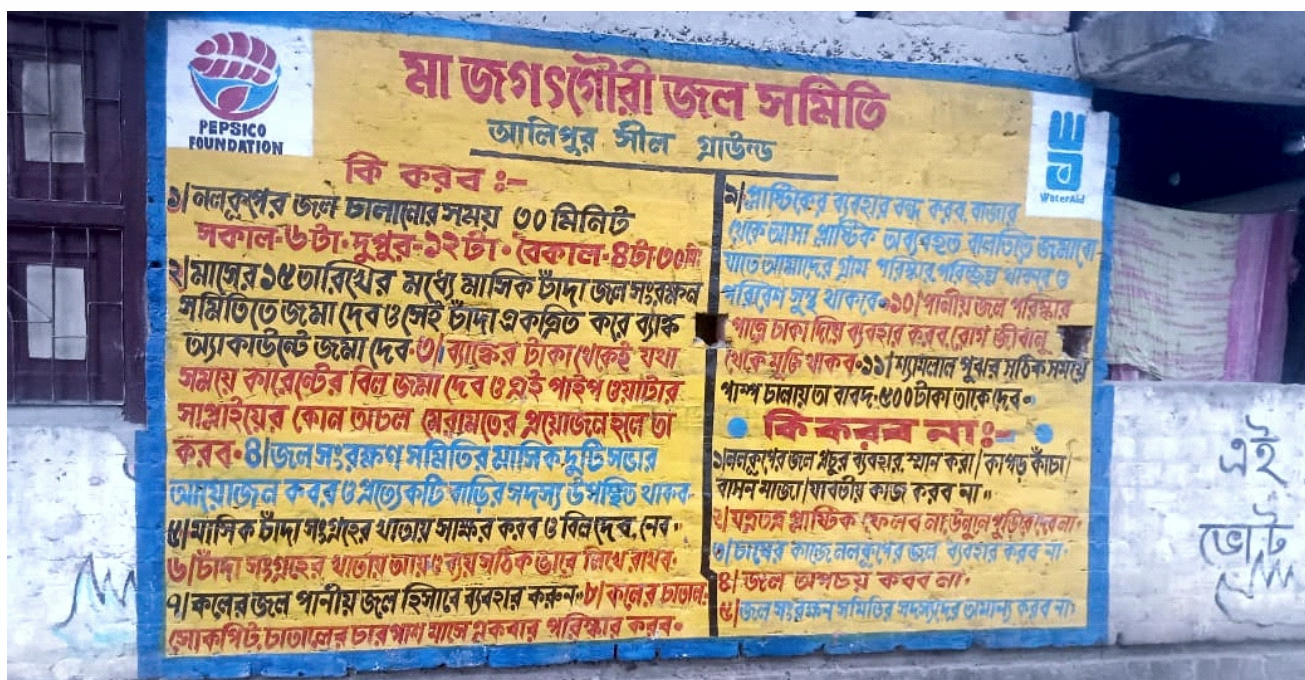 PEPSICO
FOUNDATION
মা জগৎগৌরী জল সমিতি
আলিপুর সীল গ্রাউন্ড
WaterAid
কি করব ঃ-
১/নলকূপের জল চালানোর সময় ৩০ মিনিট
সকাল-৬টা·দুপুর-১২টা·বৈকাল-৪টা·৩০মিঃ
২/মাসের ১৫তারিখের মধ্যে মাসিক চাঁদা জল সংরক্ষন
সমিতিতে জমা দেব ও সেই চাঁদা একত্রিত করে ব্যাঙ্ক
অ্যাকাউন্টে জমা দেব·৩/ব্যাঙ্কের টাকা থেকেই যথা
সময়ে কারেন্টের বিল জমা দেব ও এই পাইপ ওয়াটার
সাপ্লাইয়ের কোন অচল মেরামতের প্রয়োজন হলে তা
করব·৪/জল সংরক্ষণ সমিতির মাসিক দুটি সভার
আয়োজন করব ও প্রত্যেকটি বাড়ির সদস্য উপস্থিত থাকব·
৫/মাসিক চাঁদা সংগ্রহের খাতায় সাক্ষর করব ও বিল দেব, নেব··
৬/চাঁদা সংগ্রহের খাতায় আয় ও ব্যয় সঠিক ভাবে লিখে রাখব·
৭/কলের জল পানীয় জল হিসাবে ব্যবহার করুন··৮/কলের চাতাল·
সোকপিট, চাতালের চারপাশ মাসে একবার পরিস্কার করব·
৯/প্লাষ্টিকের ব্যবহার বন্ধ করব, বাজার
থেকে আসা প্লাষ্টিক অব্যবহৃত বালতিতে জমাবো
যাতে আমাদের গ্রাম পরিস্কার পরিচ্ছন্ন থাকবে ও
পরিবেশ সুস্থ থাকবে·১০/পানীয় জল পরিস্কার
পাত্রে ঢাকা দিয়ে ব্যবহার করব, রোগ জীবানু
থেকে মুক্তি থাকব·১১/শ্যামলাল পুঝর সঠিক সময়ে
পাম্প চালায় তা বাবদ·৫০০টাকা তাকে দেব·
কি করব না ঃ-
১/নলকূপের জল প্রচুর ব্যবহার, স্মান করা/কাপড় কাঁচা/
বাসন মাজা/যাবতীয় কাজ করব না··
২/যত্রতত্র প্লাষ্টিক ফেলব না, উনুনে পুড়িয়ে দেব না·
৩/চাষের কাজে নলকূপের জল ব্যবহার করব না·
৪/জল অপচয় করব না·
৫/জল সংরক্ষন সমিতির সদস্যদের অমান্য করব না·
এই
ভোট